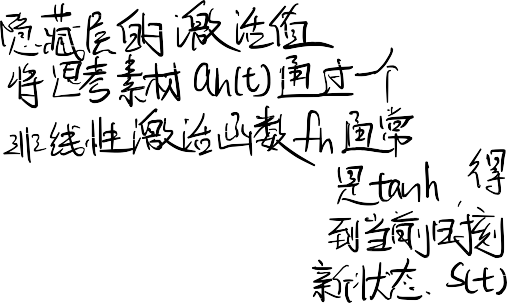 隐藏层的激活值
将思考素材 ah(t) 通过一个
非线性激活函数 fh 通常
是tanh,得
到当前时刻
新状态、S(t)